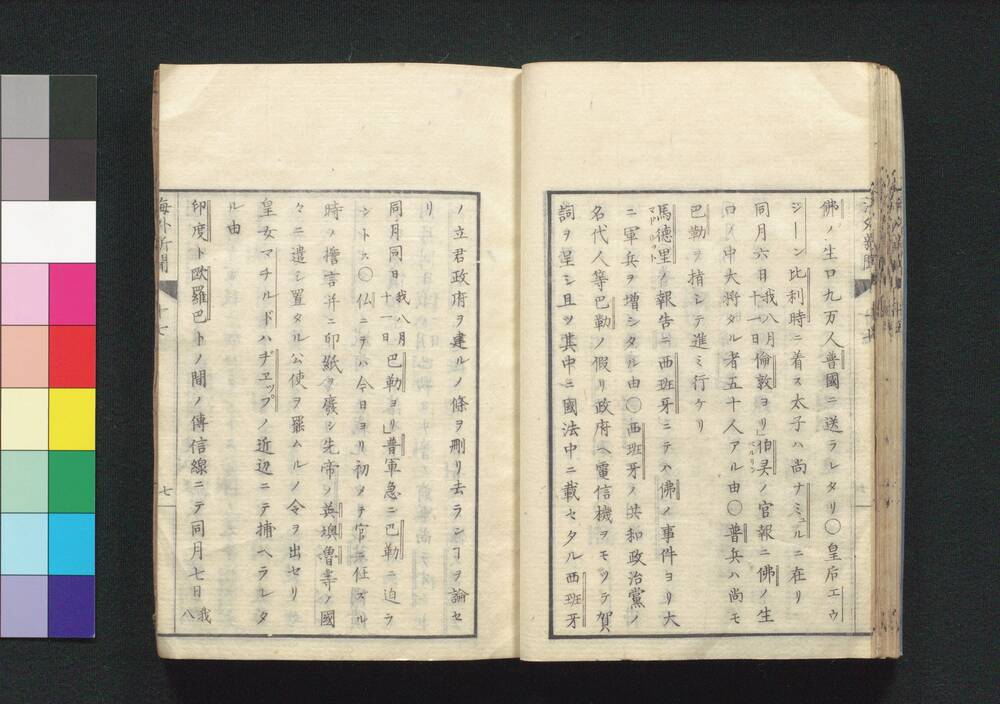 佛ノ生口九万人普國ニ送ラレタリ〇皇后エウ
ジーン比利時ニ着ス太子ハ尚ナミュルニ在リ
同月六日我八月十一日倫敦ヨリ」伯灵ノ官報ニ佛ノ生
口ノ中大将タル者五十人アル由〇普兵ハ尚モ
巴勒ヲ指シテ進ミ行ケリ
馬德里ノ報告ニ西班牙ニテハ佛ノ事件ヨリ大
ニ軍兵ヲ増シタル由〇西班牙ノ共和政治黨ノ
名代人等巴勒ノ假リ政府ヘ電信機ヲモツテ賀
詞ヲ呈シ且ツ其中ニ國法中ニ載セタル西班牙
ノ立君政府ヲ建ルノ條ヲ刪リ去ランヿヲ論セ
リ
同月同日我八月十一日巴勒ヨリ」普軍急ニ巴勒ニ迫ラ
ントス〇仏ニテハ今日ヨリ初メテ官ニ任ズル
時ノ擔言并ニ印紙ヲ廢シ先帝ノ英墺魯等ノ國
々ニ遣シ置タル公使ヲ罷ムルノ令ヲ出セリ
皇女マチルドハヂエップノ近辺ニテ捕ヘラレタ
ル由
印度ト欧羅巴トノ間ノ傳信線ニテ同月七日我八
海外新聞 十七
七